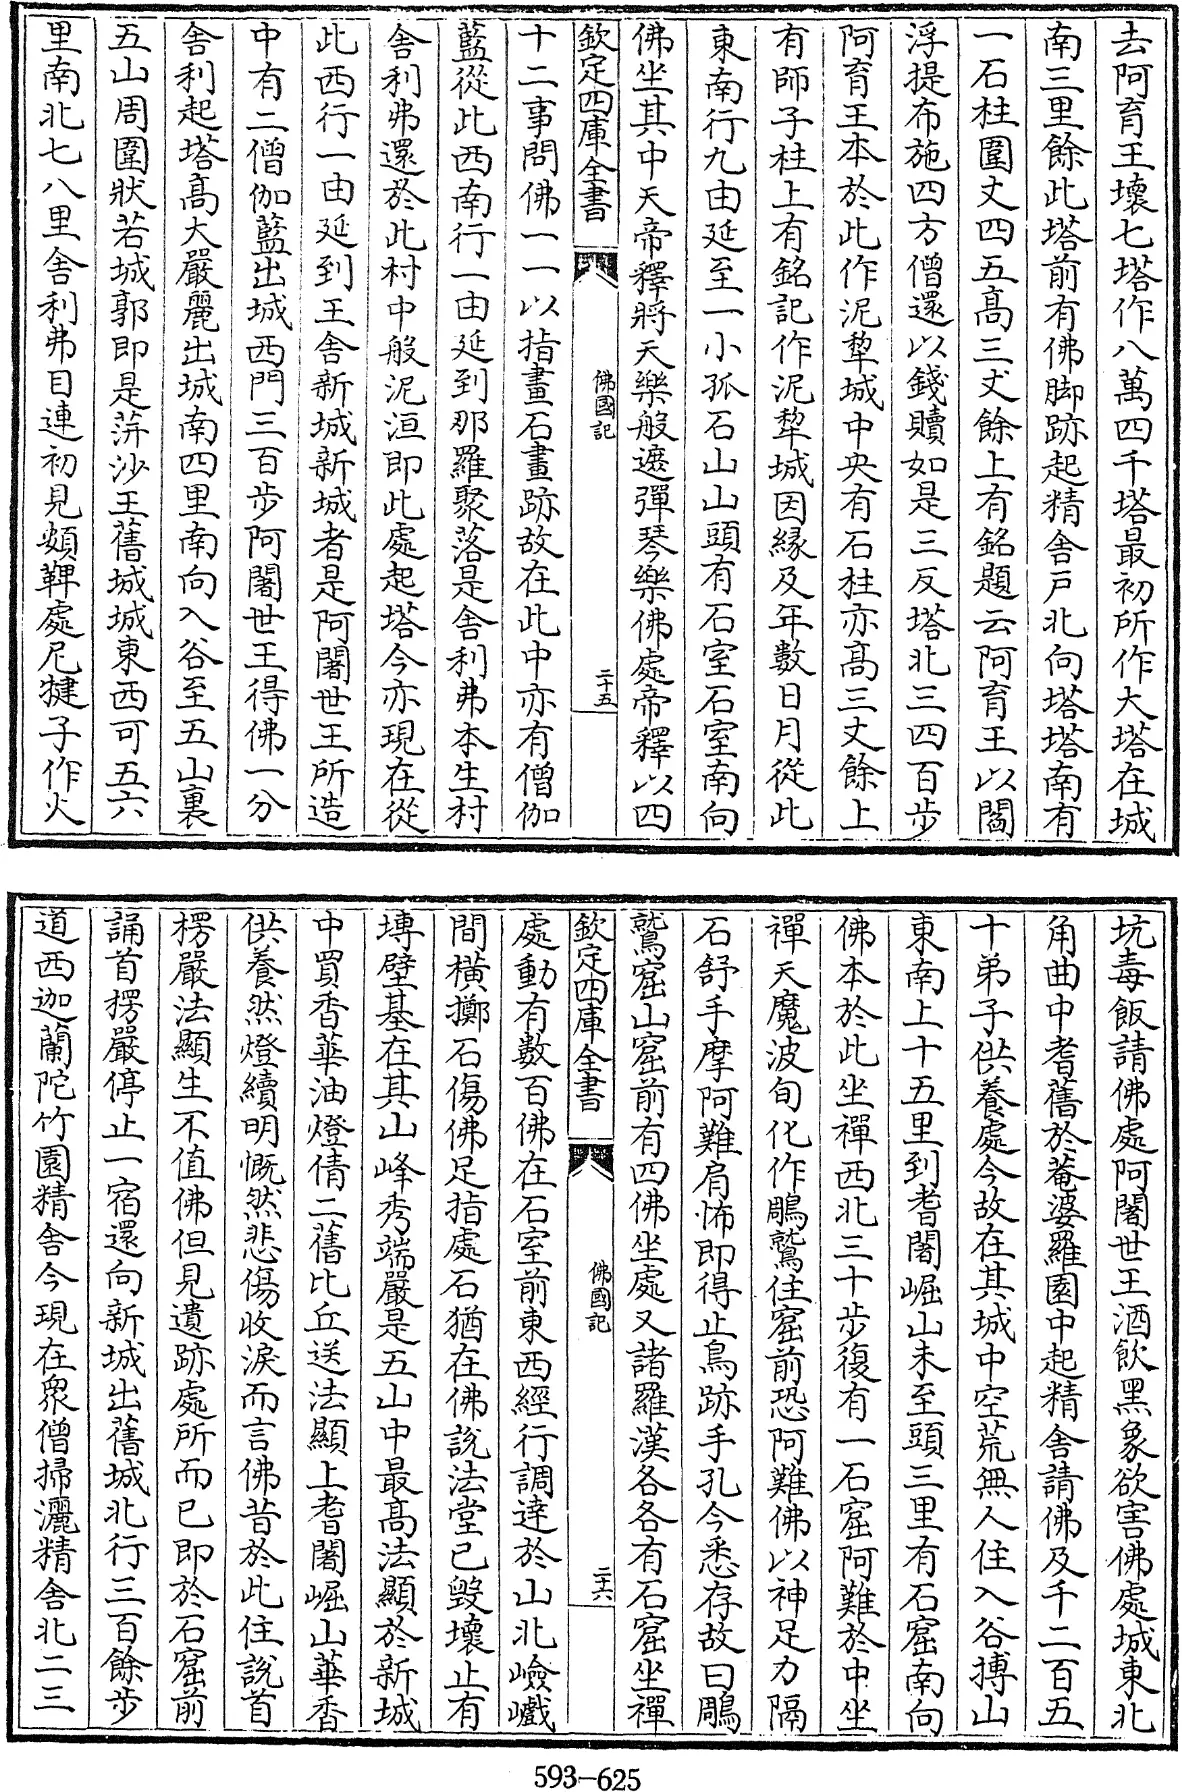 去阿育王壞七塔作八萬四千塔最初所作大塔在城
南三里餘此塔前有佛脚跡起精舍戸北向塔塔南有
一石柱圍丈四五高三丈餘上有銘題云阿育王以閻
浮提布施四方僧還以錢贖如是三反塔北三四百步
阿育王本於此作泥犂城中央有石柱亦高三丈餘上
有師子柱上有銘記作泥犂城因縁及年數日月從此
東南行九由延至一小孤石山山頭有石室石室南向
佛坐其中天帝釋將天樂般遮彈琴樂佛處帝釋以四
欽定四庫全書
佛國記
二十五
十二事問佛一一以指畫石畫跡故在此中亦有僧伽
藍從此西南行一由延到那羅聚落是舍利弗本生村
舍利弗還於此村中般泥洹即此處起塔今亦現在從
此西行一由延到王舍新城新城者是阿闍世王所造
中有二僧伽藍出城西門三百步阿闍世王得佛一分
舍利起塔高大嚴麗出城南四里南向入谷至五山裏
五山周圍狀若城郭即是蓱沙王舊城城東西可五六
里南北七八里舍利弗目連初見頞鞞處尼犍子作火
坑毒飯請佛處阿闍世王酒飲黑象欲害佛處城東北
角曲中耆舊於菴婆羅園中起精舍請佛及千二百五
十弟子供養處今故在其城中空荒無人住入谷搏山
東南上十五里到耆闍崛山未至頭三里有石窟南向
佛本於此坐禪西北三十步復有一石窟阿難於中坐
禪天魔波旬化作鵰鷲住窟前恐阿難佛以神足力隔
石舒手摩阿難肩怖即得止鳥跡手孔今悉存故曰鵰
鷲窟山窟前有四佛坐處又諸羅漢各各有石窟坐禪
欽定四庫全書
佛國記
二十六
處動有數百佛在石室前東西經行調達於山北嶮巇
間橫擲石傷佛足指處石猶在佛說法堂已毀壞止有
塼壁基在其山峰秀端嚴是五山中最高法顯於新城
中買香華油燈倩二舊比丘送法顯上耆闍崛山華香
供養然燈續明慨然悲傷收淚而言佛昔於此住說首
楞嚴法顯生不值佛但見遺跡處所而已即於石窟前
誦首楞嚴停止一宿還向新城出舊城北行三百餘步
道西迦蘭陀竹園精舍今現在衆僧掃灑精舍北二三
593-625